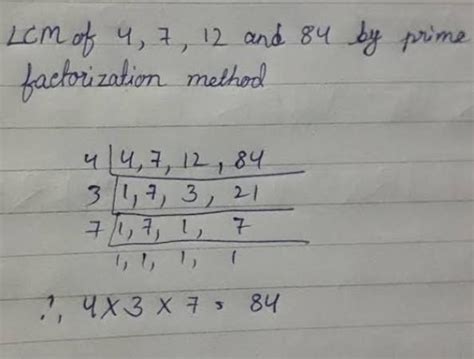 LCM of 4, 7, 12 and 84 by prime
factorization method
4 | 4, 7, 12, 84
3 | 1, 7, 3, 21
7 | 1, 7, 1, 7
1, 1, 1, 1
∴, 4 X 3 X 7 = 84